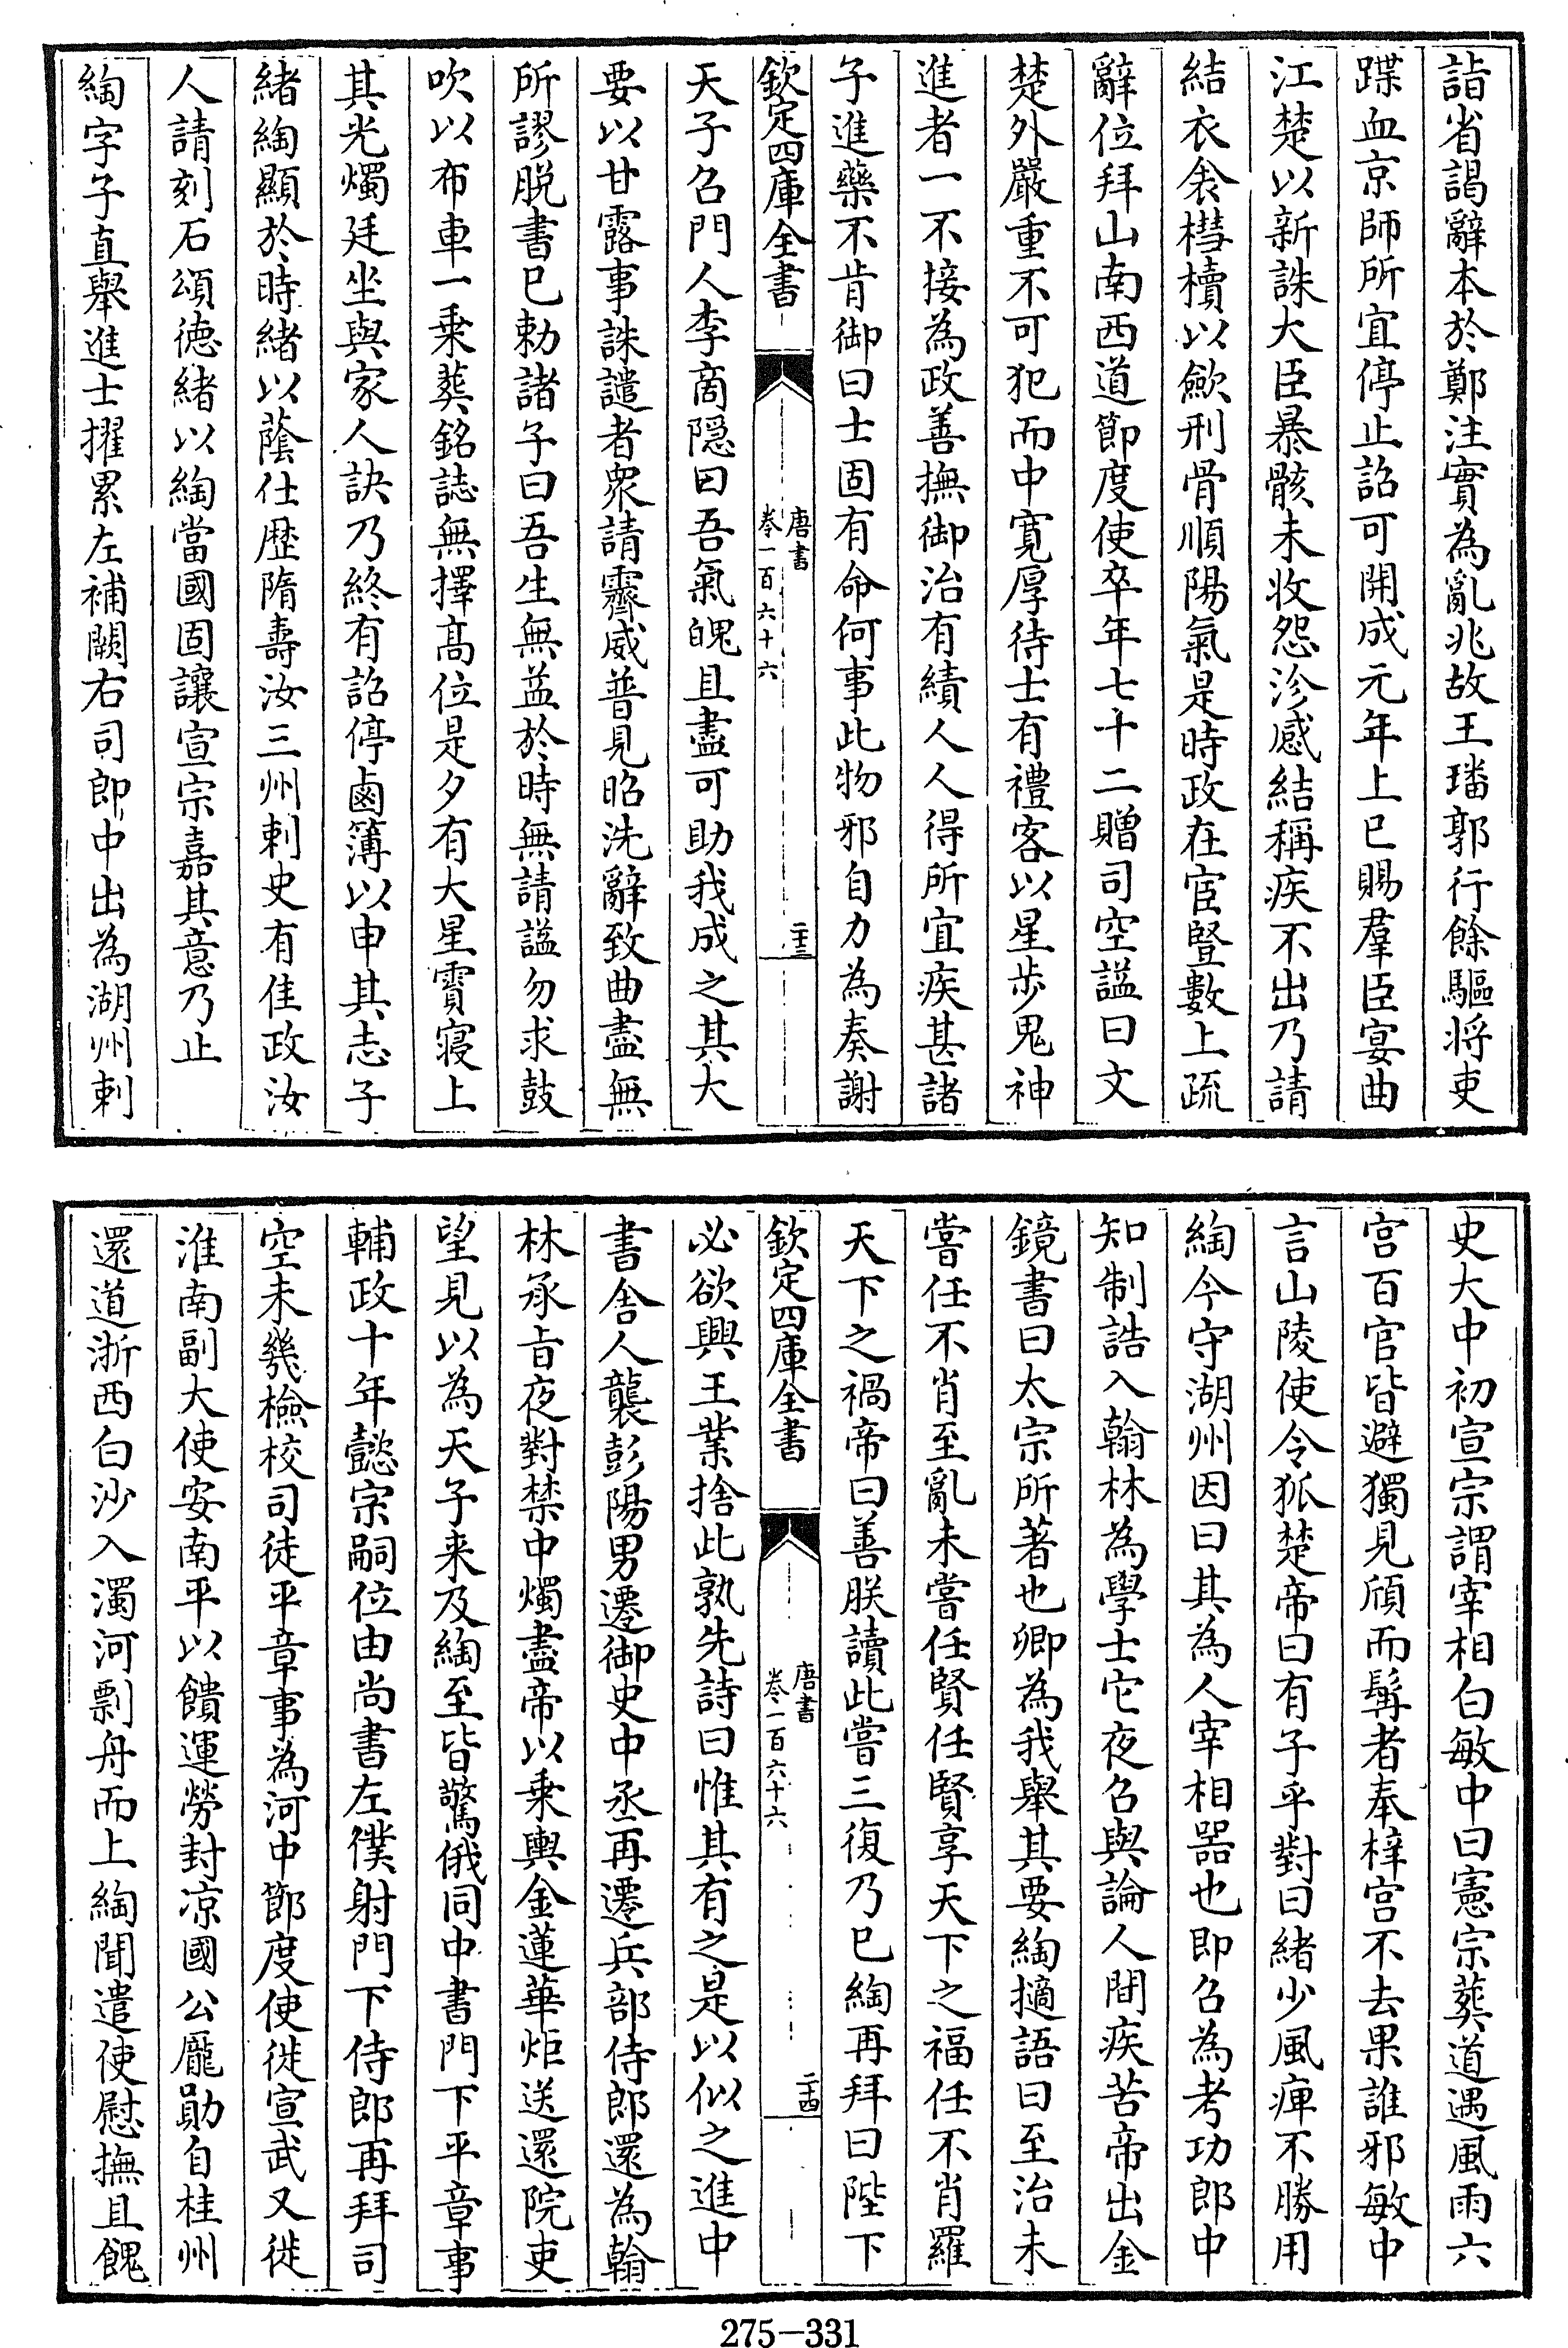 詣省謁辭本於鄭注實為亂兆故王璠郭行餘驅将吏
蹀血京師所宜停止詔可開成元年上巳賜羣臣宴曲
江楚以新誅大臣暴骸未收怨沴感結稱疾不出乃請
結衣衾槥櫝以斂刑骨順陽氣是時政在宦豎數上疏
辭位拜山南西道節度使卒年七十二贈司空諡曰文
楚外嚴重不可犯而中寛厚待士有禮客以星步鬼神
進者一不接為政善撫御治有績人人得所宜疾甚諸
子進藥不肯御曰士固有命何事此物邪自力為奏謝
欽定四庫全書
唐書
卷一百六十六
二十三
天子召門人李商隠曰吾氣魄且盡可助我成之其大
要以甘露事誅譴者衆請霽威普見昭洗辭致曲盡無
所謬脱書已勅諸子曰吾生無益於時無請諡勿求鼓
吹以布車一乗葬銘誌無擇髙位是夕有大星霣寢上
其光燭廷坐與家人訣乃終有詔停鹵簿以申其志子
緒綯顯於時緒以蔭仕歴隋壽汝三州刺史有佳政汝
人請刻石頌徳緒以綯當國固讓宣宗嘉其意乃止
綯字子直舉進士擢累左補闕右司郎中出為湖州刺
史大中初宣宗謂宰相白敏中曰憲宗葬道遇風雨六
宫百官皆避獨見頎而髯者奉梓宫不去果誰邪敏中
言山陵使令狐楚帝曰有子乎對曰緒少風痺不勝用
綯今守湖州因曰其為人宰相器也即召為考功郎中
知制誥入翰林為學士它夜召與論人間疾苦帝出金
鏡書曰太宗所著也卿為我舉其要綯擿語曰至治未
嘗任不肖至亂未嘗任賢任賢享天下之福任不肖羅
天下之禍帝曰善朕讀此嘗三復乃已綯再拜曰陛下
欽定四庫全書
唐書
卷一百六十六
二十四
必欲興王業捨此孰先詩曰惟其有之是以似之進中
書舎人襲彭陽男遷御史中丞再遷兵部侍郎還為翰
林承旨夜對禁中燭盡帝以乗輿金蓮華炬送還院吏
望見以為天子来及綯至皆驚俄同中書門下平章事
輔政十年懿宗嗣位由尚書左僕射門下侍郎再拜司
空未幾檢校司徒平章事為河中節度使徙宣武又徙
淮南副大使安南平以饋運勞封凉國公龎勛自桂州
還道浙西白沙入濁河剽舟而上綯聞遣使慰撫且餽
275-331